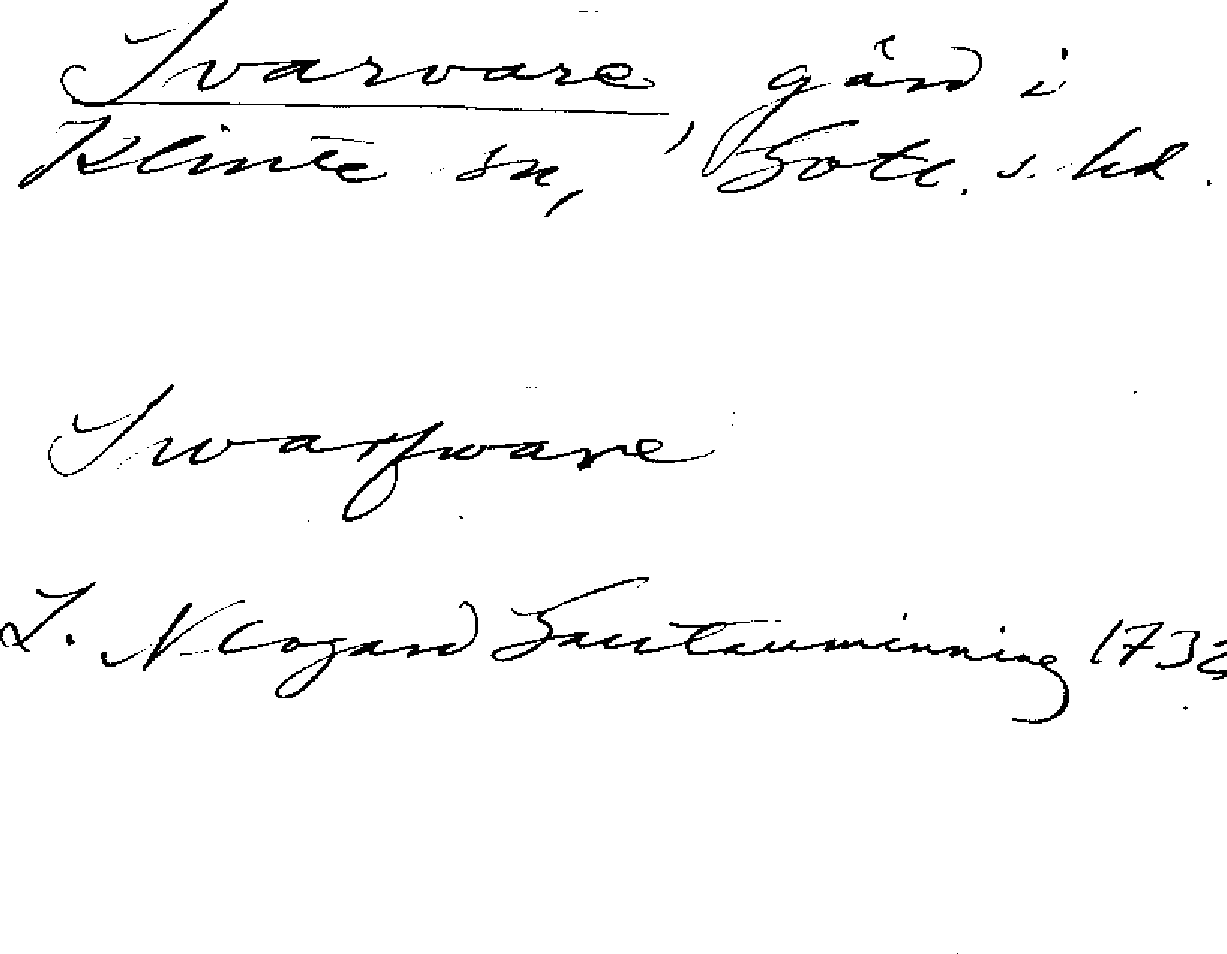 Svarvare, gård i
Klinte sn, Gotl. s. hd.
Swarfware
L. Neogard Gautauminning 1732